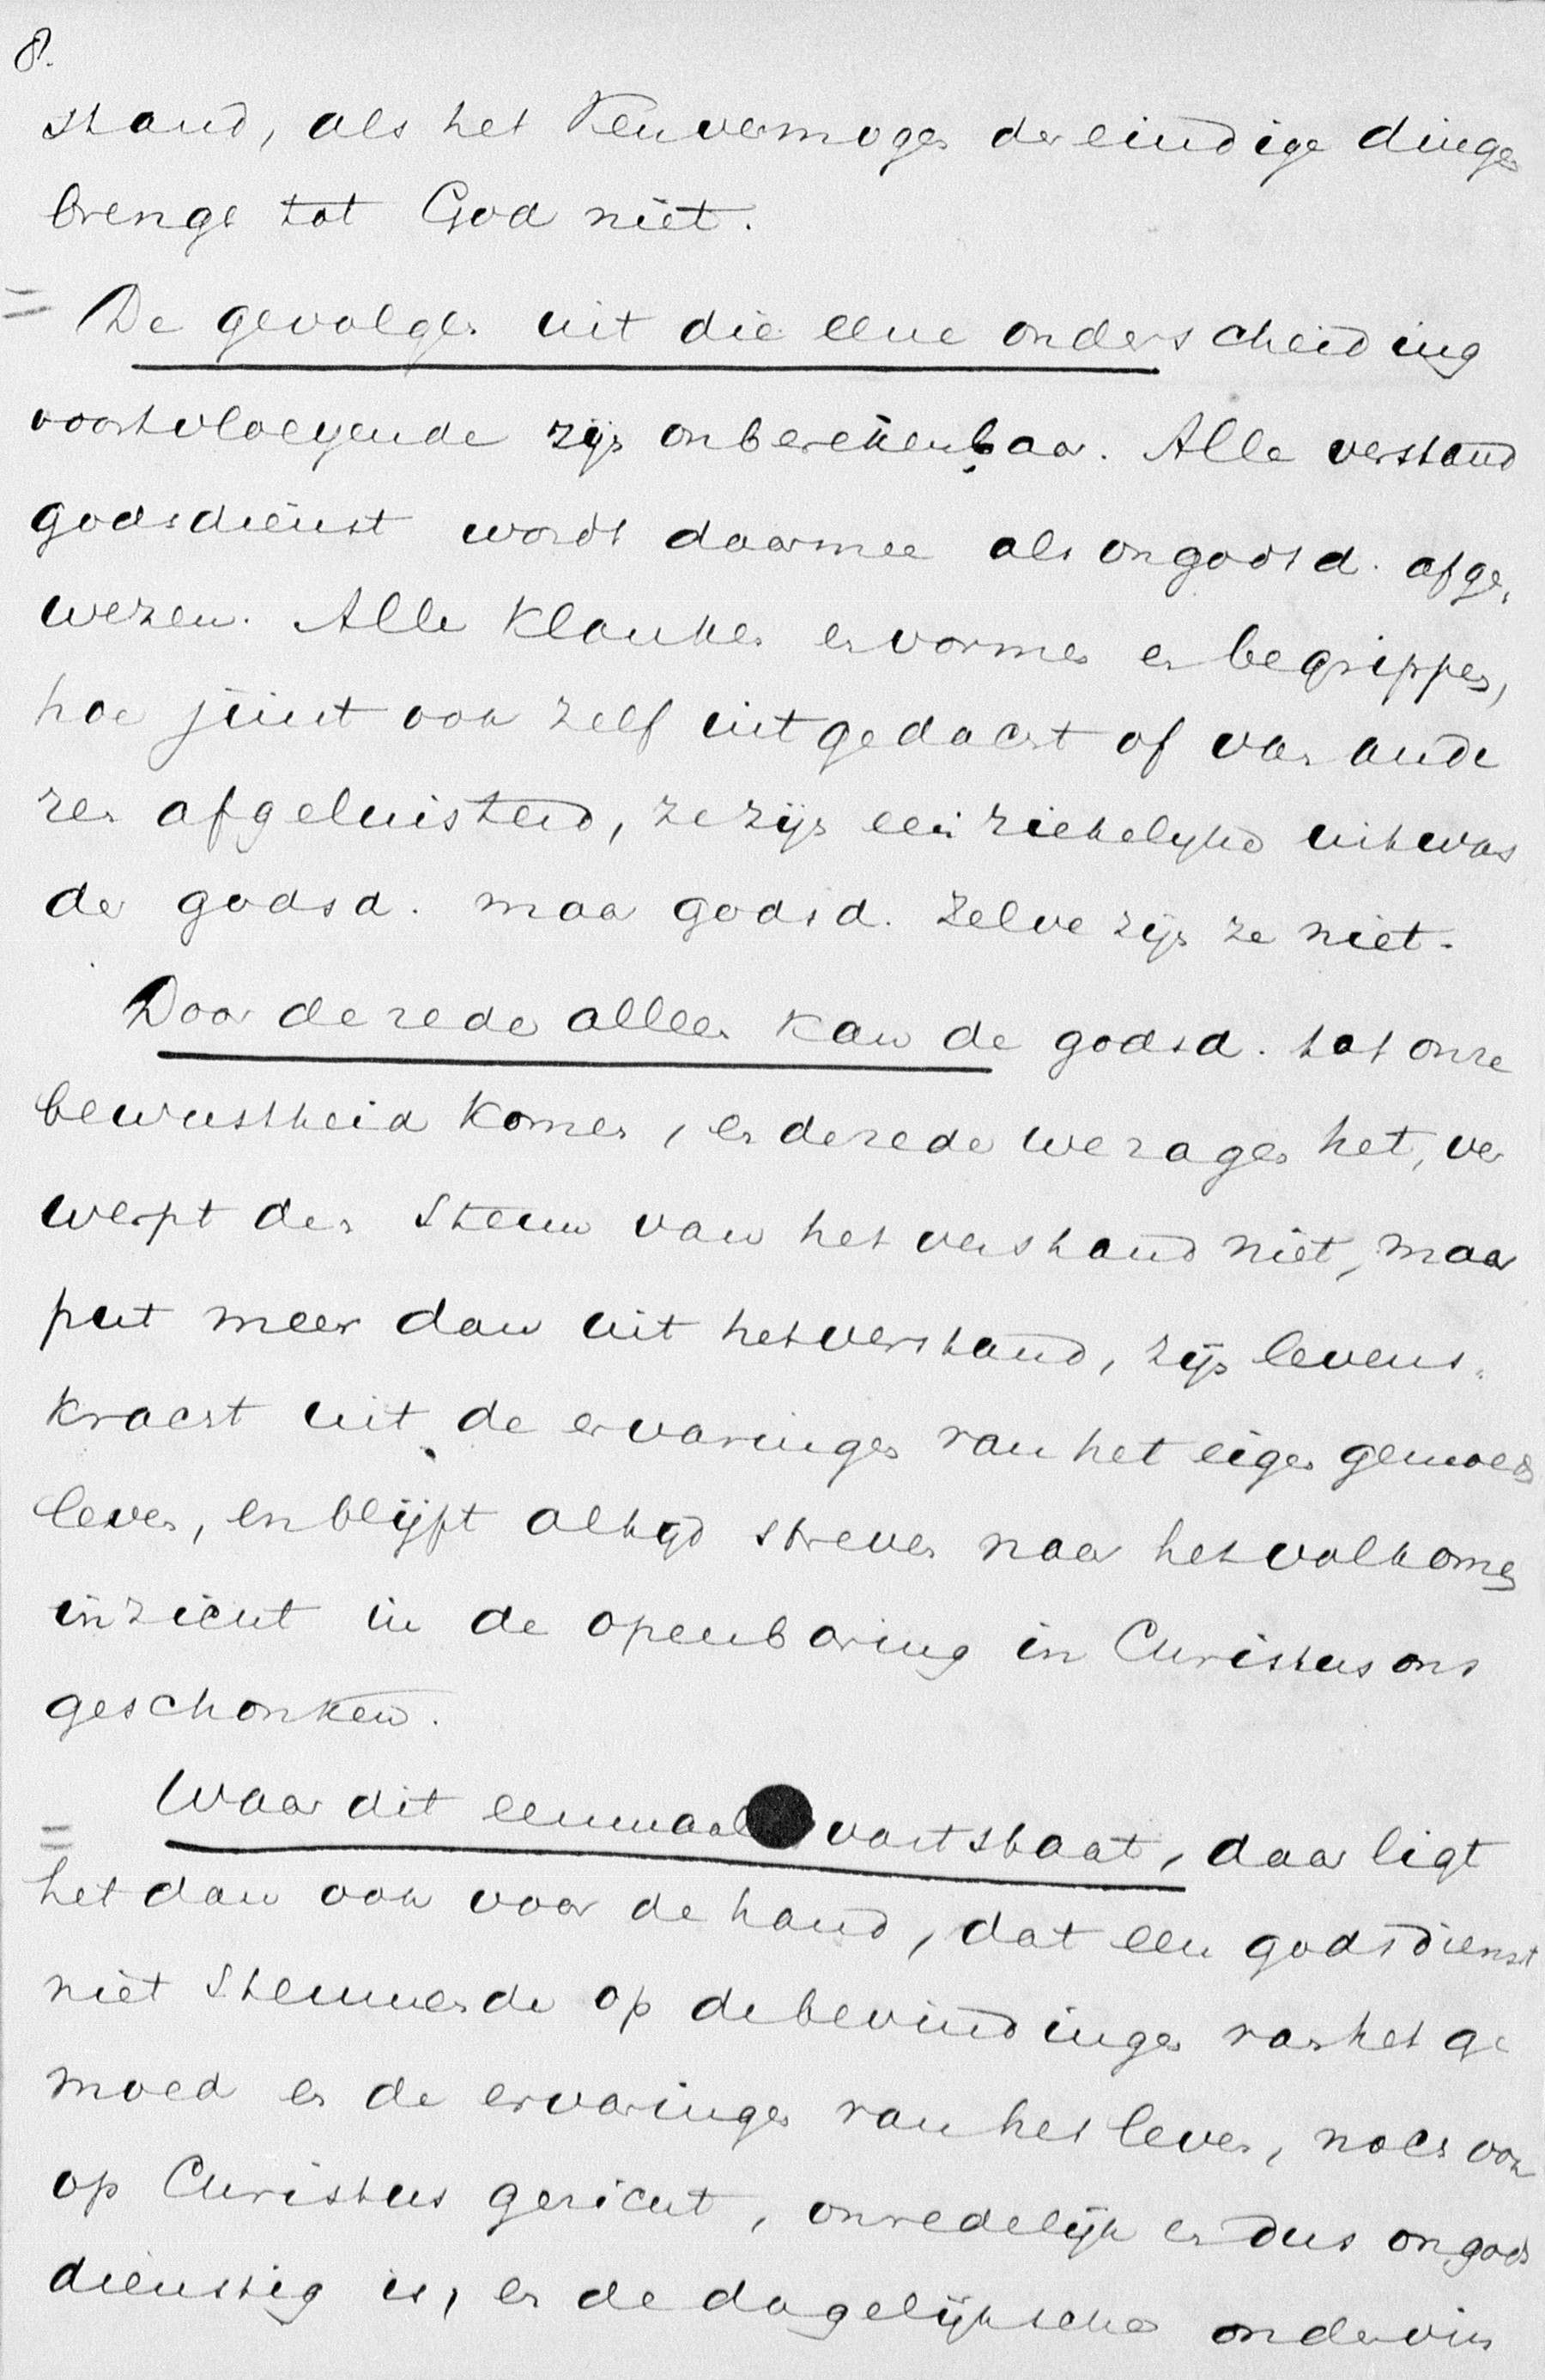 8.
stand, als het Kenvermogen der eindige dingen
brengt tot God niet.
= De gevolgen uit die eene onderscheiding
voortvloeyende zijn onberekenbaar. Alle verstand
godsdienst wordt daarmee als ongodsd. afge,
wezen. Alle Klanken en vormen en begrippen,
hoe juist ook zelf uitgedacht of van ande
ren afgeluisterd, ze zijn een ziekelijke uitwas
der godsd. maar godsd. zelve zijn ze niet.
Door de rede alleen kan de godsd. tot onze
bewustheid Komen, en de rede we zagen het, ver
werpt den steun van het verstand niet, maar
put meer dan uit het verstand, zijn levens,
kracht uit de ervaringen van het eigen gemoeds
leven, en blijft altijd streven naar het volkomen
inzicht in de openbaring in Christus ons
geschonken.
= Waar dit eenmaal vaststaat, daar ligt
het dan ook voor de hand, dat een godsdienst
niet steunende op de bevindingen van het ge
moed en de ervaringen van het leven, noch ook
op Christus gericht, onredelijk en dus ongods
dienstig is, en de dagelijksche ondervin